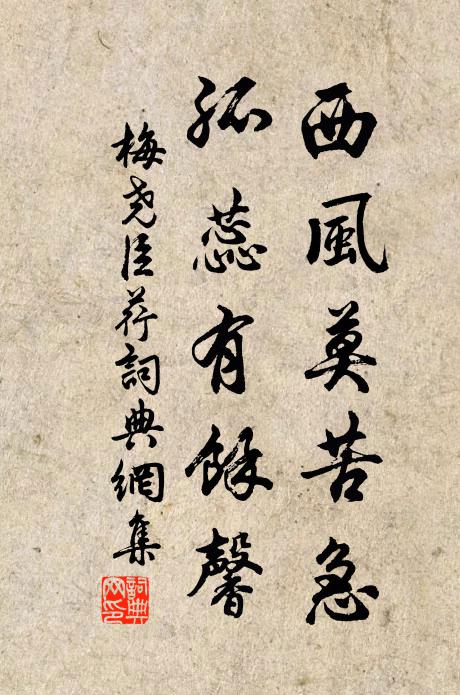 西風莫苦急
孤蕊有餘馨
梅尧臣荇詞典網集
詞典
网印